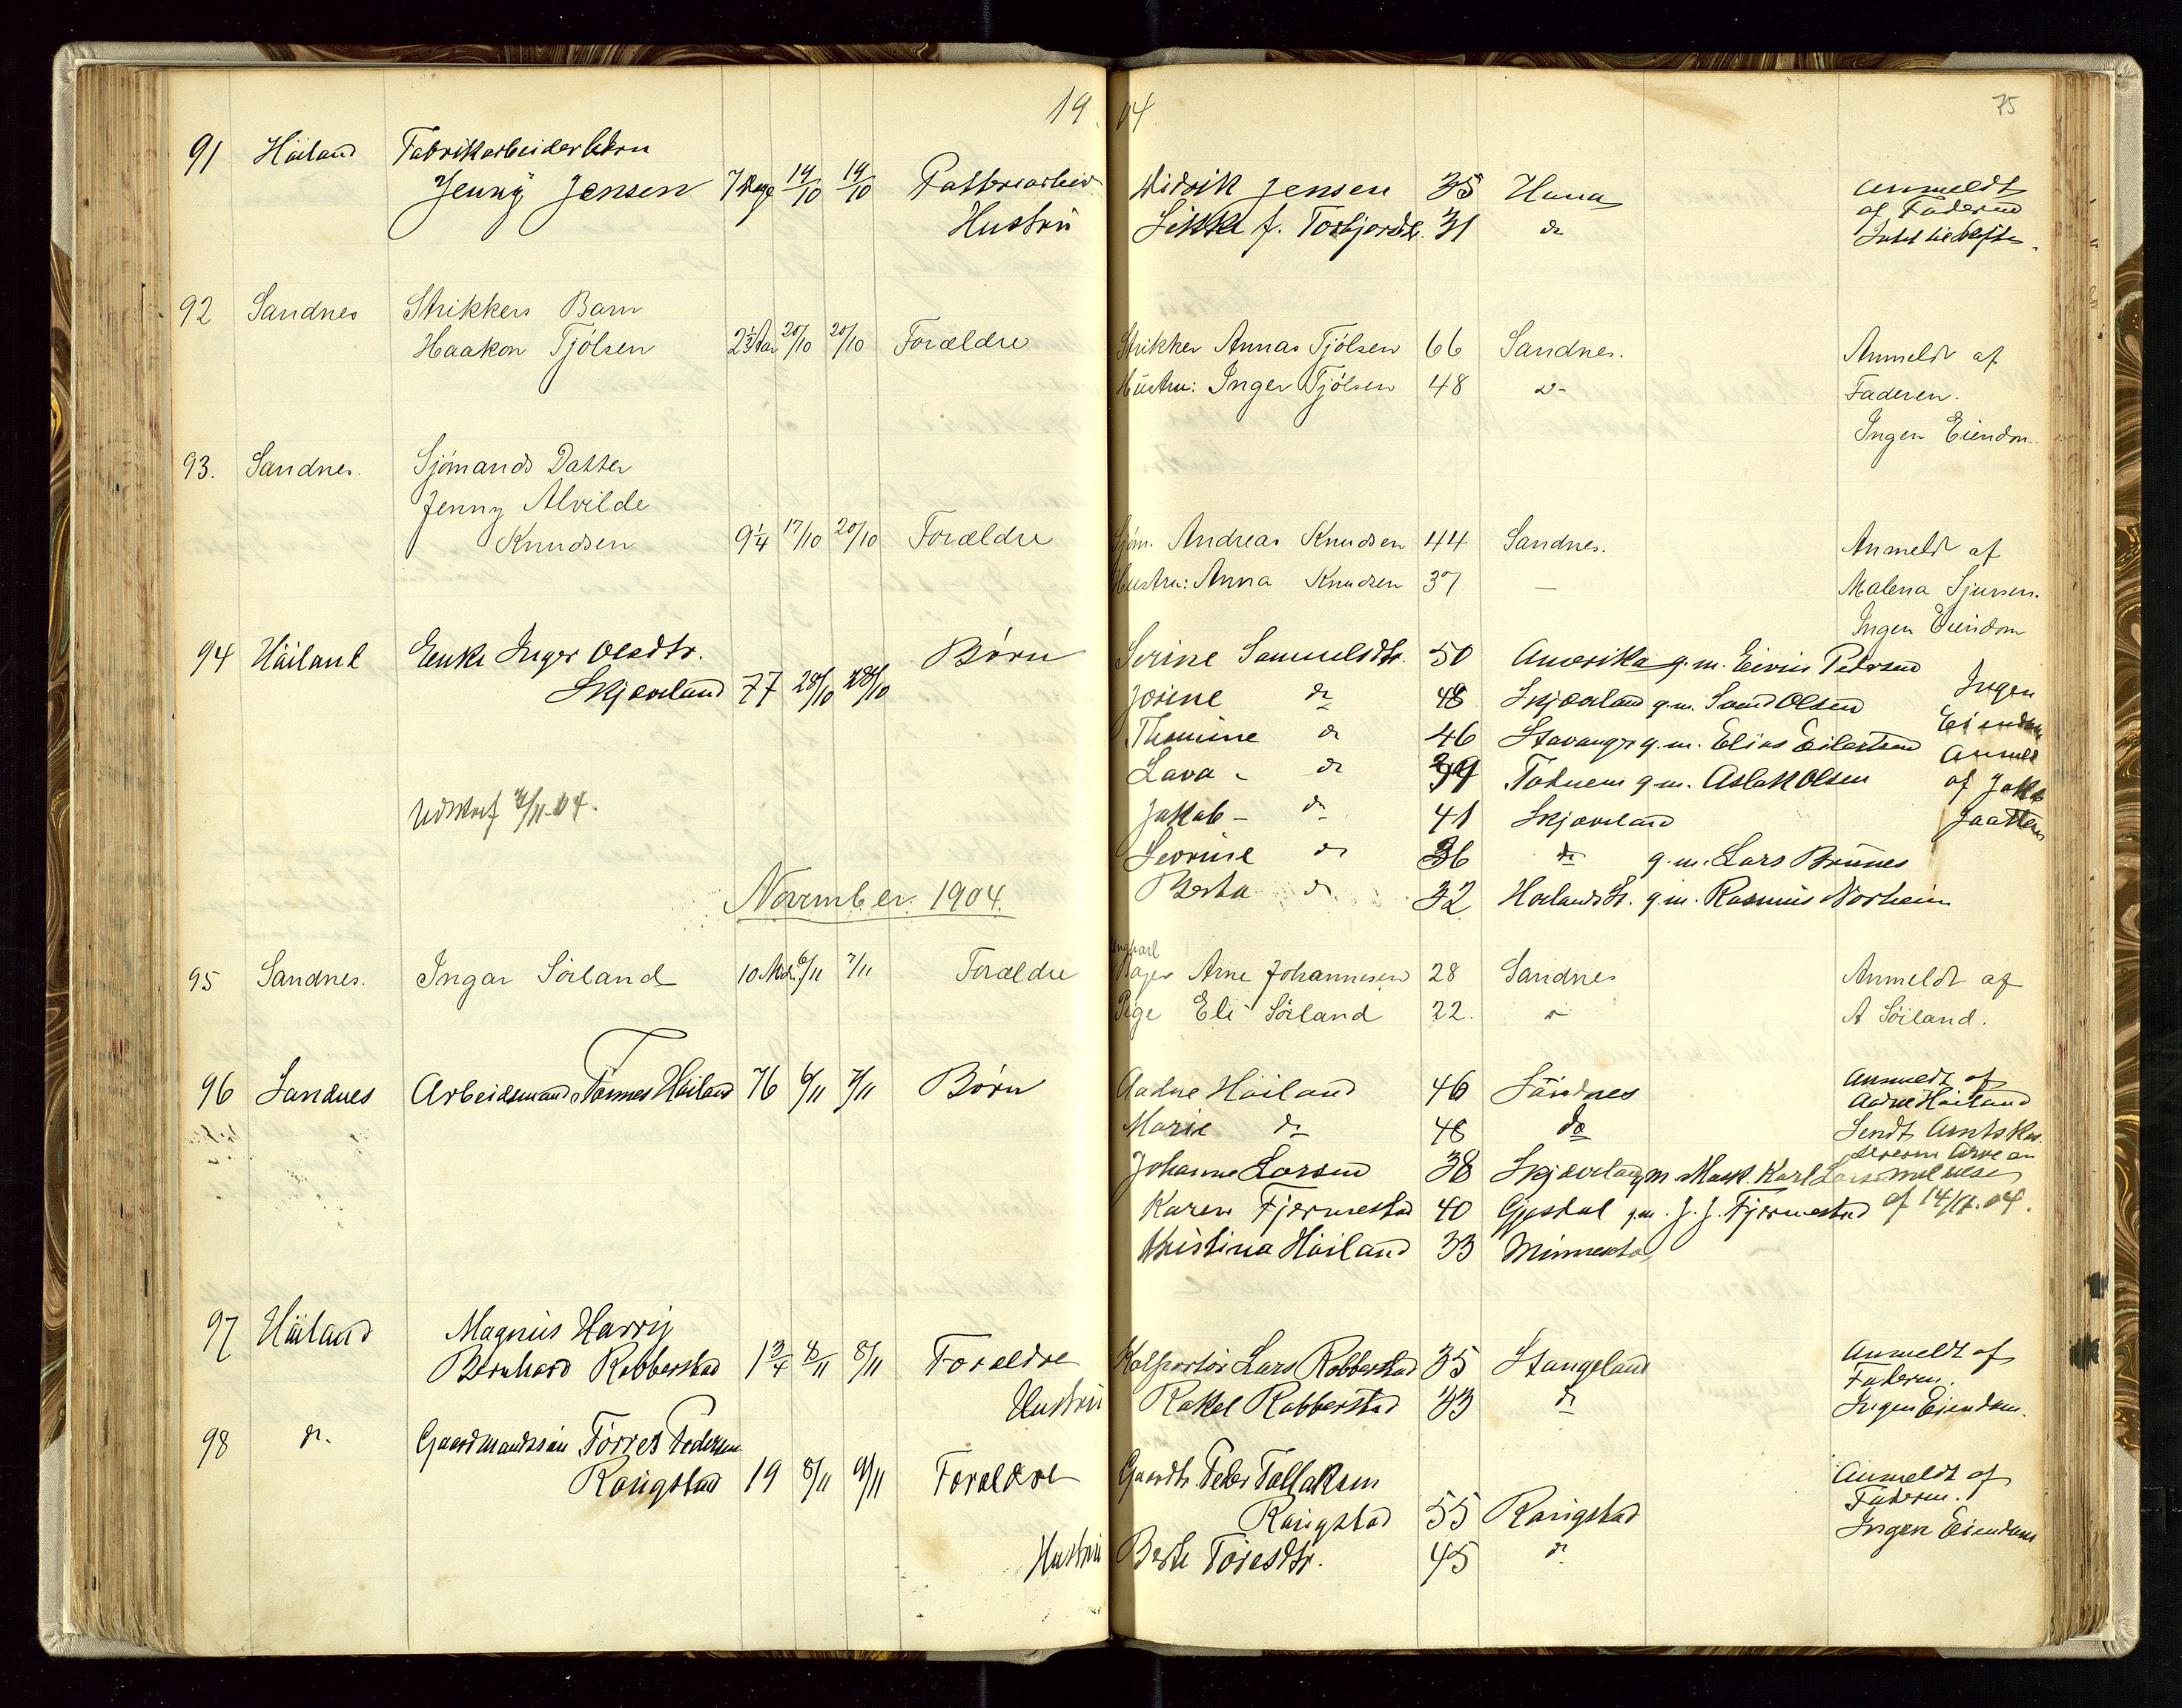 19 04 75
91 Høiland Fabrikarbeiderbarn
Jenny Jensen 7 Dage 19/10 19/10 Didrik Jensen 35 Hana Anmeldt
af Faderen
Hustru 31 do
92 Sandnes Strikkers Barn
Haakon Tjølsen 2½ Aar 20/10 20/10 Forældre Strikker Annas Tjølsen 66 Sandnes. Anmeldt af
Hustru: Inger Tjølsen 48 do Faderen.
Ingen Eiendom.
93. Sandnes. Sjømands Datter
Jenny Alvilde
Knudsen 9¼ 17/10 20/10 Forældre Sjøm. Andreas Knudsen 44 Sandnes. Anmeldt af
Hustru: Anna Knudsen 37 — Malena Sjursen.
Ingen Eiendom
94 Høiland Enke Inger Olsdtr. Børn Serine Samuelsdtr. 50 Amerika g.m. Petersen
Skjæveland 77 28/10 28/10 Josine do 48 Skjæveland g.m. Olsen Ingen
Thomine do 46 Stavanger g.m. Elias Eilertsen Eiendom
Lava - do 39 g.m. Aslak Olsen Anmeldt
Udskrif /11-04. Jakob - do 41 Skjæveland af Jakob
do 36 do g.m. Lars Brunes
November 1904. Berta do 32 g.m. Rasmus Norheim
Ungkarl
95 Sandnes. Ingar Söiland 10 Mdr. 6/11 7/11 Forældre Bager Arne Johannesen 28 Sandnes Anmeldt af
Pige Eli Söiland 22. do A Söiland.
96 Sandnes Arbeidsmand Tønnes Høiland 76 6/11 7/11 Børn Aadne Høiland 46 Sandnes Anmeldt af
Aadne Høiland
Marie do 48 do Sendt
Johanne Larsen 38 Skjæveland g.m. Mask. Karl Larsen
Karen Fjermestad 40 Gjesdal g.m. J. J. Fjermestad af 14/11.04.
Kristina Høiland 33 Minnesota
97 Høiland Magnus Harry
Bernhard Rabberstad 1¾ 8/11 8/11 Forældre Kolportør Lars Rabberstad 35 Stangeland Anmeldt af
Faderen.
Hustru Rakel Rabberstad 33 do Ingen Eiendom.
98 do. Gaardmandssøn Törres Pedersen
Raugstad 19 8/11 9/11 Forældre Gaardb. Peder Tollaksen Anmeldt af
Faderen.
Raugstad 55 Raugstad Ingen Eiendom
Hustru Berte Töresdtr. 45 do